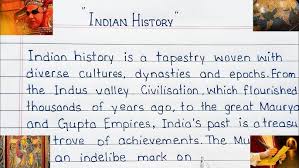 "INDIAN HISTORY"
Indian history is a tapestry woven with
diverse cultures, dynasties and epochs. From
the Indus valley Civilisation, which flourished
thousands of years ago, to the great Maurya
and Gupta Empires, India's past is a treasu
trove of achievements. The Mu
an indelibe mark on